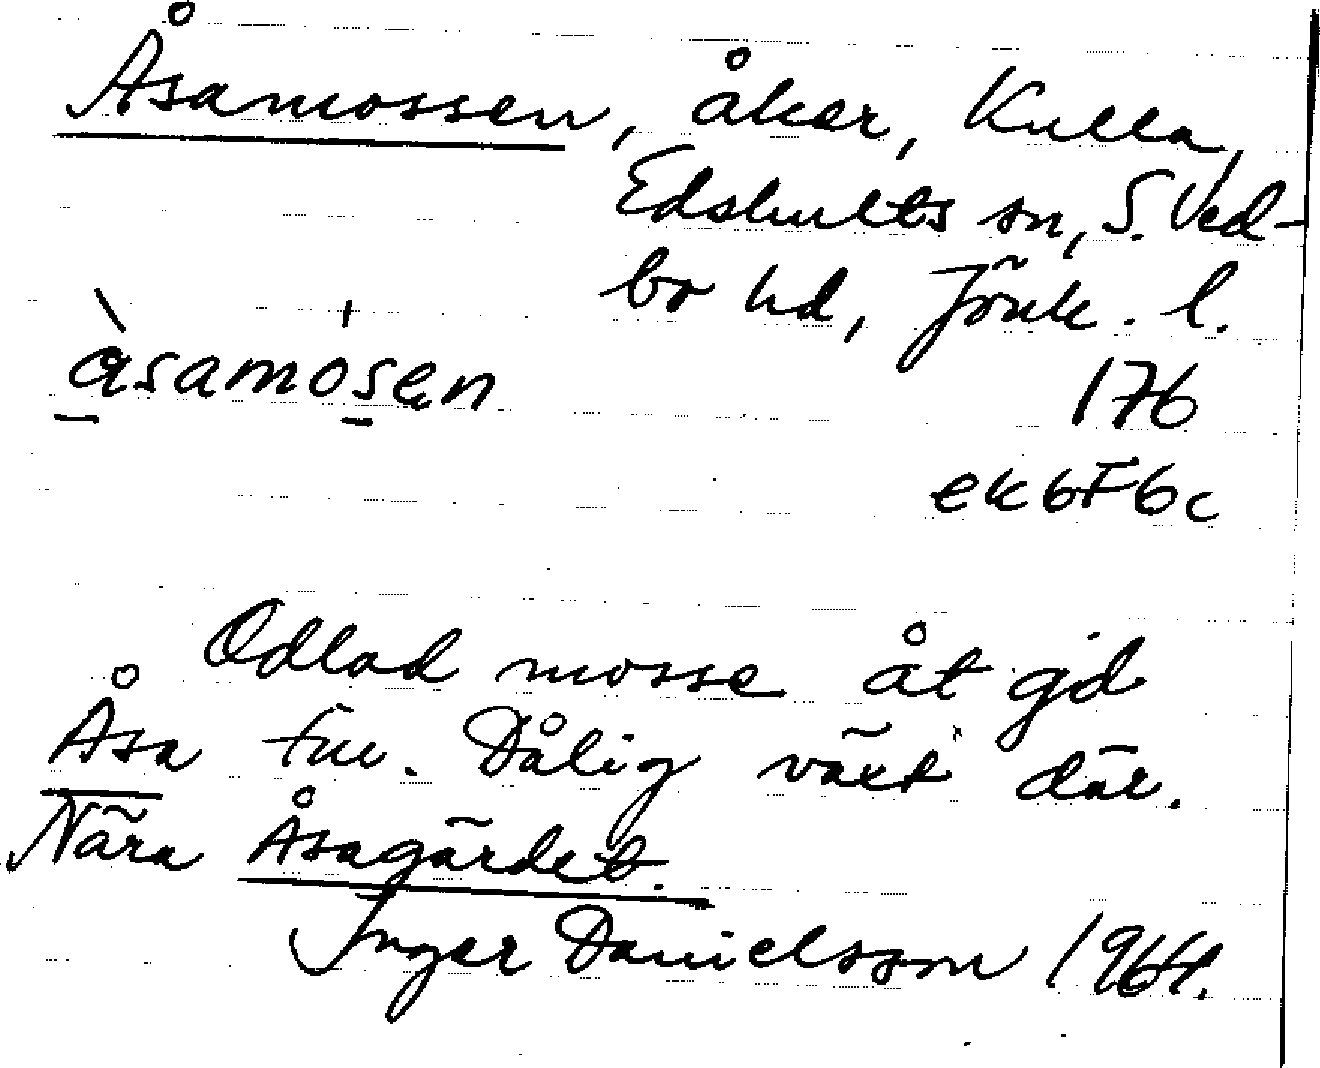 Åsamossen, åker, Kulla,
Edshults sn, S. Ved-
bo hd, Jönk. l.
àsamosen
176
ek6F6c
Odlad mosse åt gd
Åsa fw. Dålig växt där.
Nära Åsagärdet.
Inger Danielsson 1964.